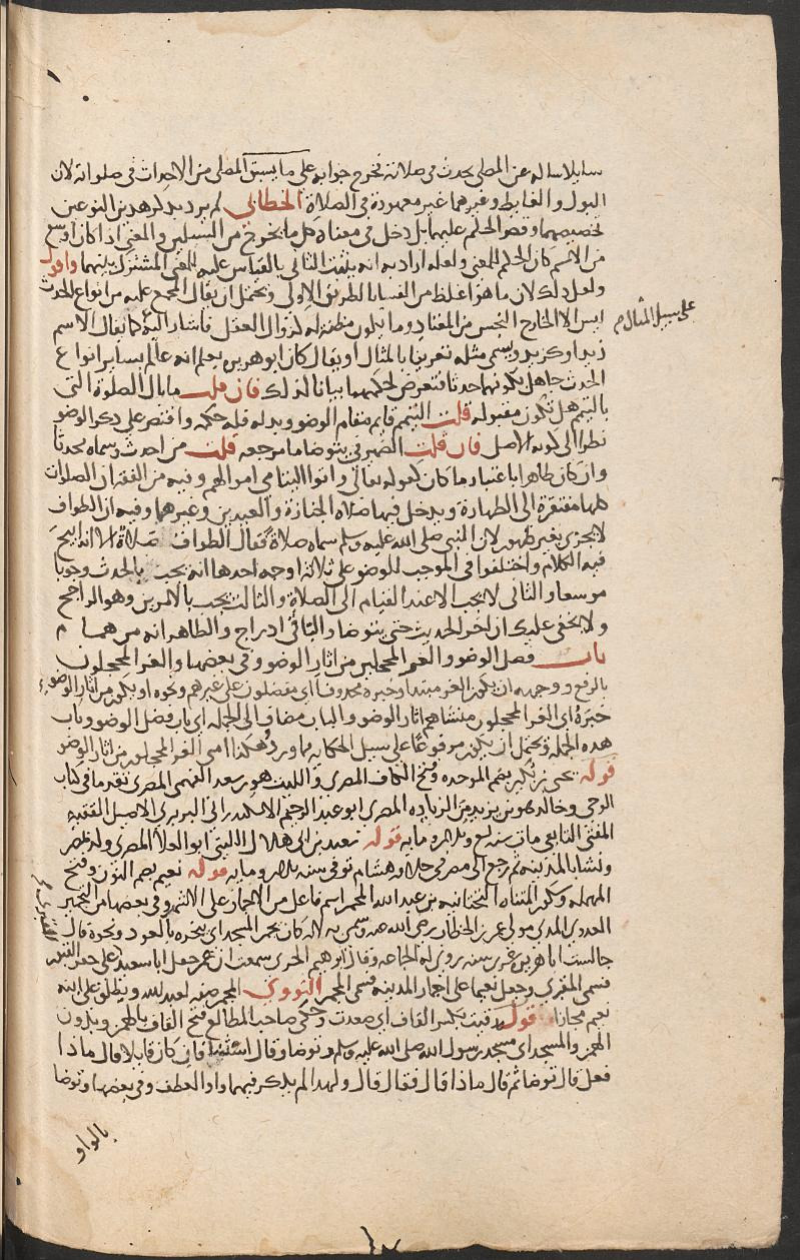 سايلا ساله عن المصلي يحدث في صلاته فخرج جوابه على ما يسبق المصلي من الاحداث في صلواته لان
البول والغايط وغيرهما غير معهودة في الصلاة الخطابي لم يرد بذكر هذين النوعين
تخصيصهما وقصر الحكم عليهما بل دخل في معناه كل ما يخرج من السبيلين والمعنى اذا كان اوسع
من الاسم كان الحكم للمعنى ولعله اراد به ان يثبت الثاني بالقياس عليه للمعنى المشترك بينهما واقول
ولعل ذلك لان ما هو اغلظ من الفسا بالطريق الاولى ويحتمل ان يقال المجمع عليه من انواع الحدث
ليس الا الخارج النجس من المعتاد وما يكون مظنة له كزوال العقل فاشار اليه كما يقال الاسم
على سبيل المثال
زيد او كزيد ويسمى مثله تعريفا بالمثال او يقال كان ابو هريرة يعلم انه عالم بساير انواع
الحدث جاهل بكونهما حدثا فتعرض لحكمهما بيانا لذلك فان قلت ما بال الصلوة التي
بالتيمم هل تكون مقبوله قلت التيمم قايم مقام الوضو وبدله فله حكمه واقتصر على ذكر الوضو
نظرا الى كونه الاصل فان قلت الضمير في يتوضا ما مرجعه قلت من احدث وسماه محدثا
وان كان طاهرا باعتبار ما كان كقوله تعالى واتوا اليتامى اموالهم وفيه من الفقه ان الصلوات
كلها مفتقرة الى الطهارة ويدخل فيها صلاة الجنازة والعيدين وغيرهما وفيه ان الطواف
لا يجزي بغير طهور لان النبي صلى الله عليه وسلم سماه صلاة فقال الطواف صلاة الا انه ابيح
فيه الكلام واختلفوا في الموجب للوضو على ثلاثة اوجه احدها انه يجب بالحدث وجوبا
موسعا والثاني لا يجب الا عند القيام الى الصلاة والثالث يجب بالامرين وهو الراجح
ولا يخفى عليك ان اخر الحديث حتى يتوضا والباقي ادراج والظاهر انه من همام
باب فضل الوضو والغر المحجلين من اثار الوضو وفي بعضها والغر المحجلون
بالرفع ووجهه ان يكون الغر مبتدا وخبره محذوفا اي مفضلون على غيرهم ونحوه او يكون من اثار الوضوء
خبره اي الغر المحجلون منشاهم اثار الوضو والباب مضاف الى الجمله اي باب فضل الوضو وباب
هذه الجمله ويحتمل ان يكون مرفوعا على سبيل الحكايه مما ورد هكذا امتي الغر المحجلون من اثار الوضو
قوله يحيى بن بكير بضم الموحده وفتح الكاف المصري والليث هو بن سعد الفهمي المصري تقدما في كتاب
الوحي وخالد هو بن يزيد من الزياده المصري ابو عبد الرحيم الاسكندراني البربري الاصل الفقيه
المفتي التابعي مات سنه تسع وثلاثين ومايه قوله سعيد بن ابي هلال الليثي ابو العلا المصري ولد بمصر
ونشا بالمدينه ثم رجع الى مصر في خلافه هشام توفي سنه ثلاثين ومايه قوله نعيم بضم النون وفتح
المهمله وسكون المثناه التحتانيه بن عبد الله المجمر اسم فاعل من الاجمار على الاشهر وفي بعضها من التجمير
العدوي المدني مولى عمر بن الخطاب رضي الله عنه وسمي به لانه كان يجمر المسجد اي يبخره بالعود ونحوه قال
جالست ابا هريرة عشرين سنه روى له الجماعه وقال ابرهيم الحربي سمعت ان عمر جعل ابا سعيد على حفر القبور
فسمي المقبري وجعل نعيما على اجمار المدينه فسمي المجمر النووي المجمر صفه لعبد الله ويطلق على ابنه
نعيم مجازا قوله رقيت بكسر القاف اي صعدت وحكى صاحب المطالع فتح القاف بالهمز وبدون
الهمز والمسجد اي مسجد رسول الله صلى الله عليه وسلم وتوضا وقال استئنافا كان قايلا قال ماذا
فعل قال توضا ثم قال ماذا قال فقال قال ولهذا لم يذكر فيهما واو العطف وفي بعضها وتوضا
بالواو